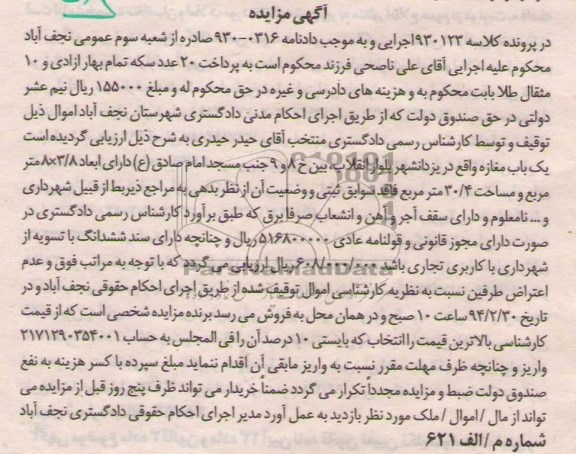 آگهی مزایده
در پرونده کلاسه ۹۳۰۱۲۳اجرایی و به موجب دادنامه ۰۳۱۶-۹۳۰ صادره از شعبه سوم عمومی نجف آباد
محکوم علیه اجرایی آقای علی ناصحی فرزند محکوم است به پرداخت ۲۰ عدد سکه تمام بهار ازادی و ۱۰
مثقال طلا بابت محکوم به و هزینه های دادرسی و غیره در حق محکوم له و مبلغ ۱۵۵۰۰۰ ریال نیم عشر
دولتی در حق صندوق دولت که از طریق اجرای احکام مدنی دادگستری شهرستان نجف آباد اموال ذیل
توقیف و توسط کارشناس رسمی دادگستری منتخب آقای حیدر حیدری به شرح ذیل ارزیابی گردیده است
یک باب مغازه واقع در یزدانشهر بلوار انقلاب، بین خ ۸ و ۹ جنب مسجد امام صادق (ع) دارای ابعاد ۳/۸×۸ متر
مربع و مساحت ۳۰/۴ متر مربع فاقد سوابق ثبتی و وضعیت آن از نظر بدهی به مراجع ذیربط از قبیل شهرداری
و ... نامعلوم و دارای سقف آجر و آهن و انشعاب صرفا برق که طبق برآورد کارشناس رسمی دادگستری در
صورت دارای مجوز قانونی و قولنامه عادی ۵۱۶۸۰۰۰۰۰ ریال و چنانچه دارای سند ششدانگ با تسویه از
شهرداری با کاربری تجاری باشد ۶۰۸/۰۰۰/۰۰۰ ریال ارزیابی می گردد که با توجه به مراتب فوق و عدم
اعتراض طرفین نسبت به نظریه کارشناسی اموال توقیف شده از طریق اجرای احکام حقوقی نجف آباد و در
تاریخ ۹۴/۲/۳۰ ساعت ۱۰ صبح و در همان محل به فروش می رسد برنده مزایده شخصی است که از قیمت
کارشناسی بالاترین قیمت را انتخاب که بایستی ۱۰ درصد آن رافی المجلس به حساب ۲۱۷۱۲۹۰۳۵۴۰۰۱
واریز و چنانچه ظرف مهلت مقرر نسبت به واریز مابقی آن اقدام ننماید مبلغ سپرده با کسر هزینه به نفع
صندوق دولت ضبط و مزایده مجدداً تکرار می گردد ضمناً خریدار می تواند ظرف پنج روز قبل از مزایده می
تواند از مال / اموال / ملک مورد نظر بازدید به عمل آورد مدیر اجرای احکام حقوقی دادگستری نجف آباد
شماره م /الف ۶۲۱